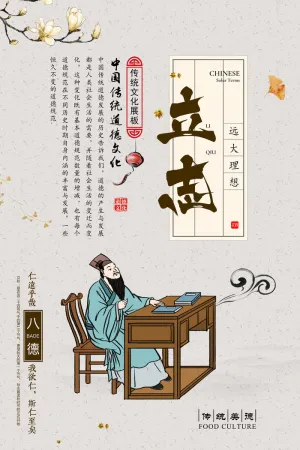 CHINESE
Solar Terms
立志
LI
QIU
远大理想
传统文化展板
中国传统道德文化
中国传统道德发展的历史告诉我们，道德的产生与发展
都是人类社会生活的需要，并随着社会生活的变迁而变
化。这种变化既有基本道德规范数量的增减，也有每个
道德规范在不同历史时期自身内涵的丰富与发展，一些
恒久不变的道德规范
仁远乎哉
八德
BADE
我欲仁，斯仁至矣
传统美德
FOOD CULTURE